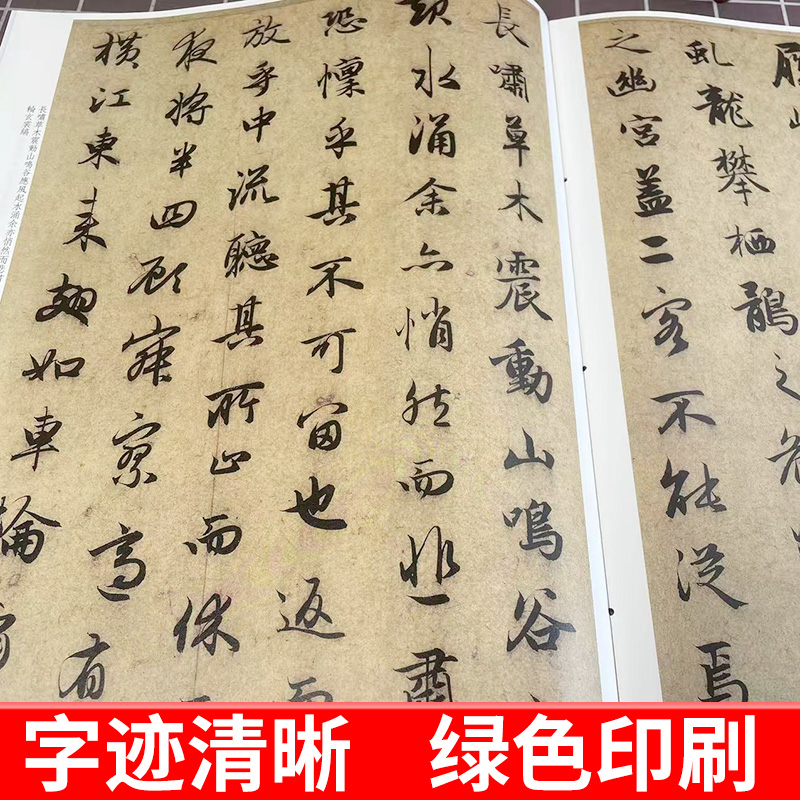 履
虬龍攀栖鶻之危
之幽宮蓋二客不能從焉
長嘯草木震動山鳴谷
水涌余亦悄然而悲肅
恐懍乎其不可留也返而
放乎中流聽其所止而休
夜將半四顧寂寥適有
橫江東來翅如車輪
長嘯草木震動山鳴谷應風起水涌余亦悄然而悲
輪玄裳縞
字迹清晰 绿色印刷